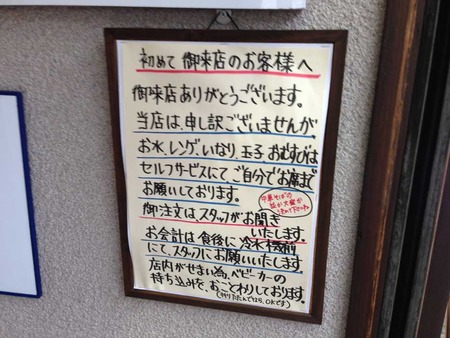 初めて御来店のお客様へ
御来店ありがとうございます。
当店は、申し訳ございませんが、
お水、レンゲ、いなり、玉子、おむすびは
セルフサービスにてご自分でお席まで
お願いしております。
中華そばの
並か大盛か
御注文は、スタッフがお聞き
いたします。
お会計は食後に冷水機前
にて、スタッフにお願いいたします
店内がせまい為、ベビーカーの
持ち込みを、おことわりしております。
OKです)